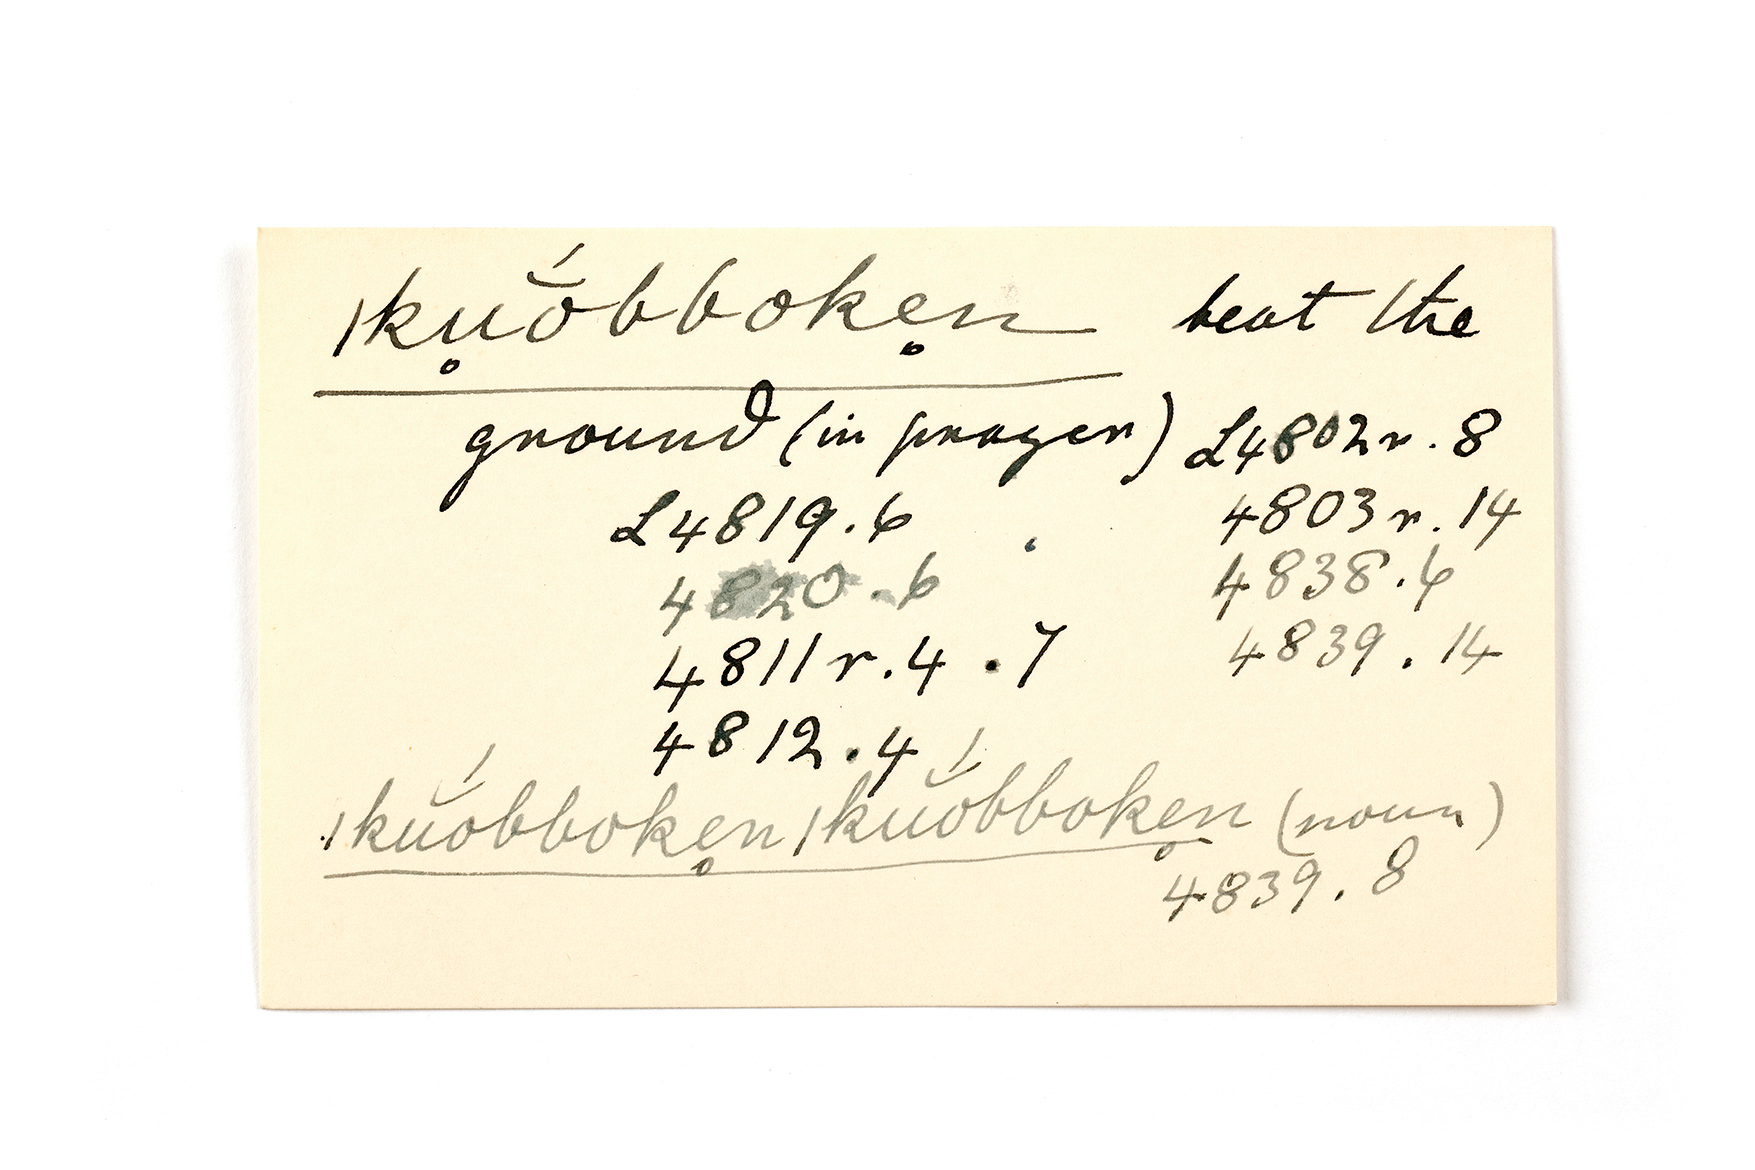 |kụŏ́bbokẹn beat the
ground (in prayer) L4802r.8
L4819.6 4803r.14
4820.6 4838.6
4811r.4 .7 4839.14
4812.4
|kŭóbbokẹn |kŭóbbokẹn (noun)
4839.8